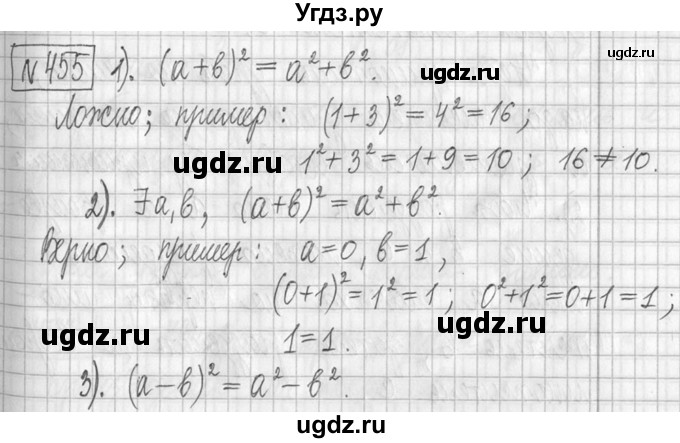 Угдз.ру
№455 1). (a+b)² = a²+b².
ugdz.ru
Ложно; пример: (1+3)² = 4² = 16;
ugdz.ru
1²+3² = 1+9 = 10; 16 ≠ 10.
2). ∃a,b, (a+b)² = a²+b².
ugdz.ru
Верно; пример: a=0, b=1,
(0+1)² = 1² = 1; 0²+1² = 0+1 = 1;
ugdz.ru
ugdz.ru
1=1.
3). (a−b)² = a²−b².
ugdz.ru